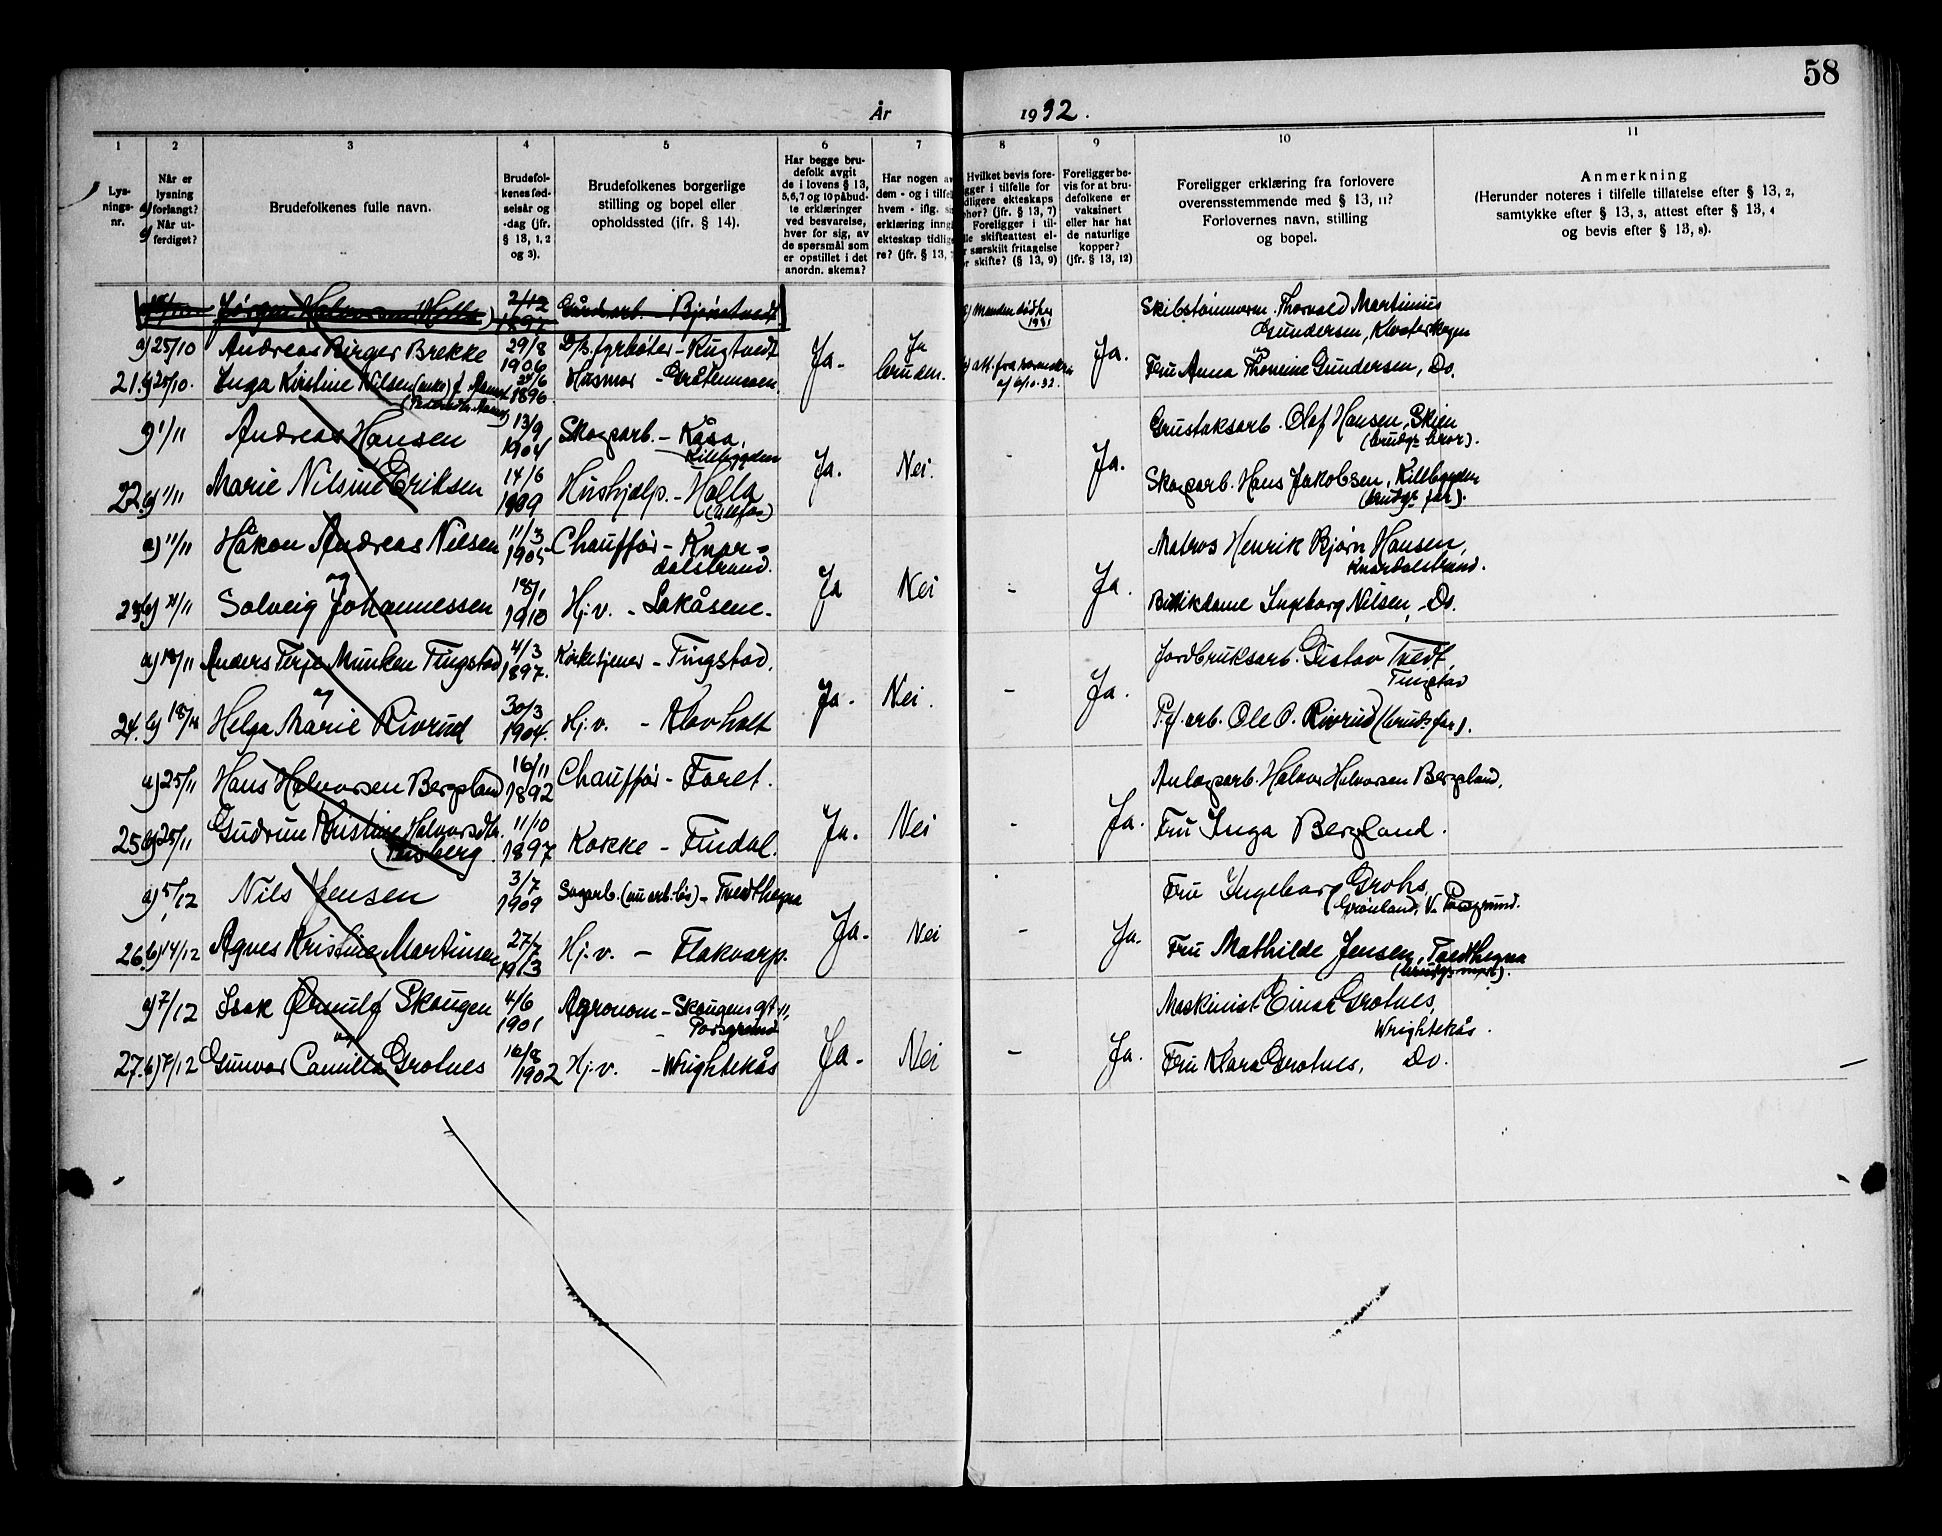 58
År 1932.
1 2 3 4 5 6 7 8 9 10 11
Lysningsnr.
Når er lysning forlangt? Når utferdiget?
a) b)
Brudefolkenes fulle navn.
Brudefolkenes fødselsår og -dag (jfr. § 13, 1, 2 og 3).
Brudefolkenes borgerlige stilling og bopel eller opholdssted (ifr. § 14).
Har begge brudefolk avgit de i lovens § 13, 5,6,7 og 10 påbudte erklæringer ved besvarelse, hver for sig, av de spørsmål som er opstillet i det anordn. skema?
Har nogen av dem - og i tilfel hvem - iflg. si erklæring inng ekteskap tidlig re? (jfr. § 13,
Hvilket bevis fore- gger i tilfelle for dligere ekteskaps phør? (jfr. § 13, 7) Foreligger i til- lle skifteattest el- særskilt fritagelse r skifte? (§ 13, 9)
Foreligger bevis for at brudefolkene er vaksinert eller har hat de naturlige kopper? (jfr. § 13, 12)
Foreligger erklæring fra forlovere overensstemmende med § 13, 11? Forlovernes navn, stilling og bopel.
Anmerkning
(Herunder noteres i tilfelle tillatelse efter § 13, 2, samtykke efter § 13, 3, attest efter § 13, 4 og bevis efter § 13, 8).
Jørgen Halvorsen Holla 2/12 1897 Gårdsarb. - Bjørntvedt
Skibstømmerm. Thorvald Martinius
Gundersen, Klosterskogen
a) 25/10 Andreas Birger Brekke 29/8 1906 D/s. fyrbøter - Rugtvedt Ja. Ja bruden. Ja.
21. b) 25/10. Inga Kirstine Nilsen (enke) f. 24/6 1896 Husmor Fru Anna Thomine Gundersen, Do.
a) 1/11 Andreas Hansen 13/9 1904 Skogsarb. - Kåsa, Kilebygden
Grustaksarb. Olaf Hansen, Skien
(brudgs bror).
22. b) 1/11 Marie Nilsine Eriksen 14/6 1909 Hushjelp. - Holla (Ulefos) Ja. Nei. - Ja.
Skogsarb. Hans Jakobsen, Kilebygden
(brudgs far).
a) 11/11 Håkon Andreas Nilsen 11/3 1905 Chauffør - Knardalstrand.
Matros Henrik Bjørn Hansen,
Knardalstrand.
og
23. b) 11/11 Solveig Johannessen 18/1 1910 H.v. - Lakåsene. Ja Nei - Ja.
Butikdame Ingeborg Nilsen, Do.
a) 18/11 Anders Terje Munken Tingstad 4/3 1897. Kirketjener - Tingstad.
Jordbruksarb. Gustav Tvedt,
Tingstad
og
24. b) 18/11 Helga Marie Rivrud 30/3 1904. H.v. - Klovholt Ja. Nei. - Ja.
P.f. arb. Ole O. Rivrud (bruds far).
a) 25/11 Hans Halvorsen Bergsland 16/11 1892 Chauffør - Foret.
Anlegsarb. Halvor Halvorsen Bergsland.
25. b) 25/11 Gudrun Kristine Halvorsdtr. 11/10 1897 Kokke - Findal. Ja. Nei - Ja.
Fru Inga Bergland.
a) 5/12 Nils Jensen 3/7 1909 Sagarb. (nu arb.løs) - Tvedthegna
Fru Ingeborg Grohs,
Grønland, V. Porsgrund.
26. b) 14/12 Agnes Kristine Martinsen 27/7 1913 H.v. - Flakvarp. Ja. Nei - Ja.
Fru Mathilde Jensen, Tvedthegna
(brudgs mor).
a) 7/12 Isak Ørnulf Skougen 4/6 1901 Agronom - Skougensgt. 11, Porsgrund
Maskinist Einar Grotnes,
Wrightekås.
og
27. b) 7/12 Gunvor Camilla Grotnes 10/8 1902 H.v. - Wrightekås Ja. Nei - Ja.
Fru Klara Grotnes, Do.